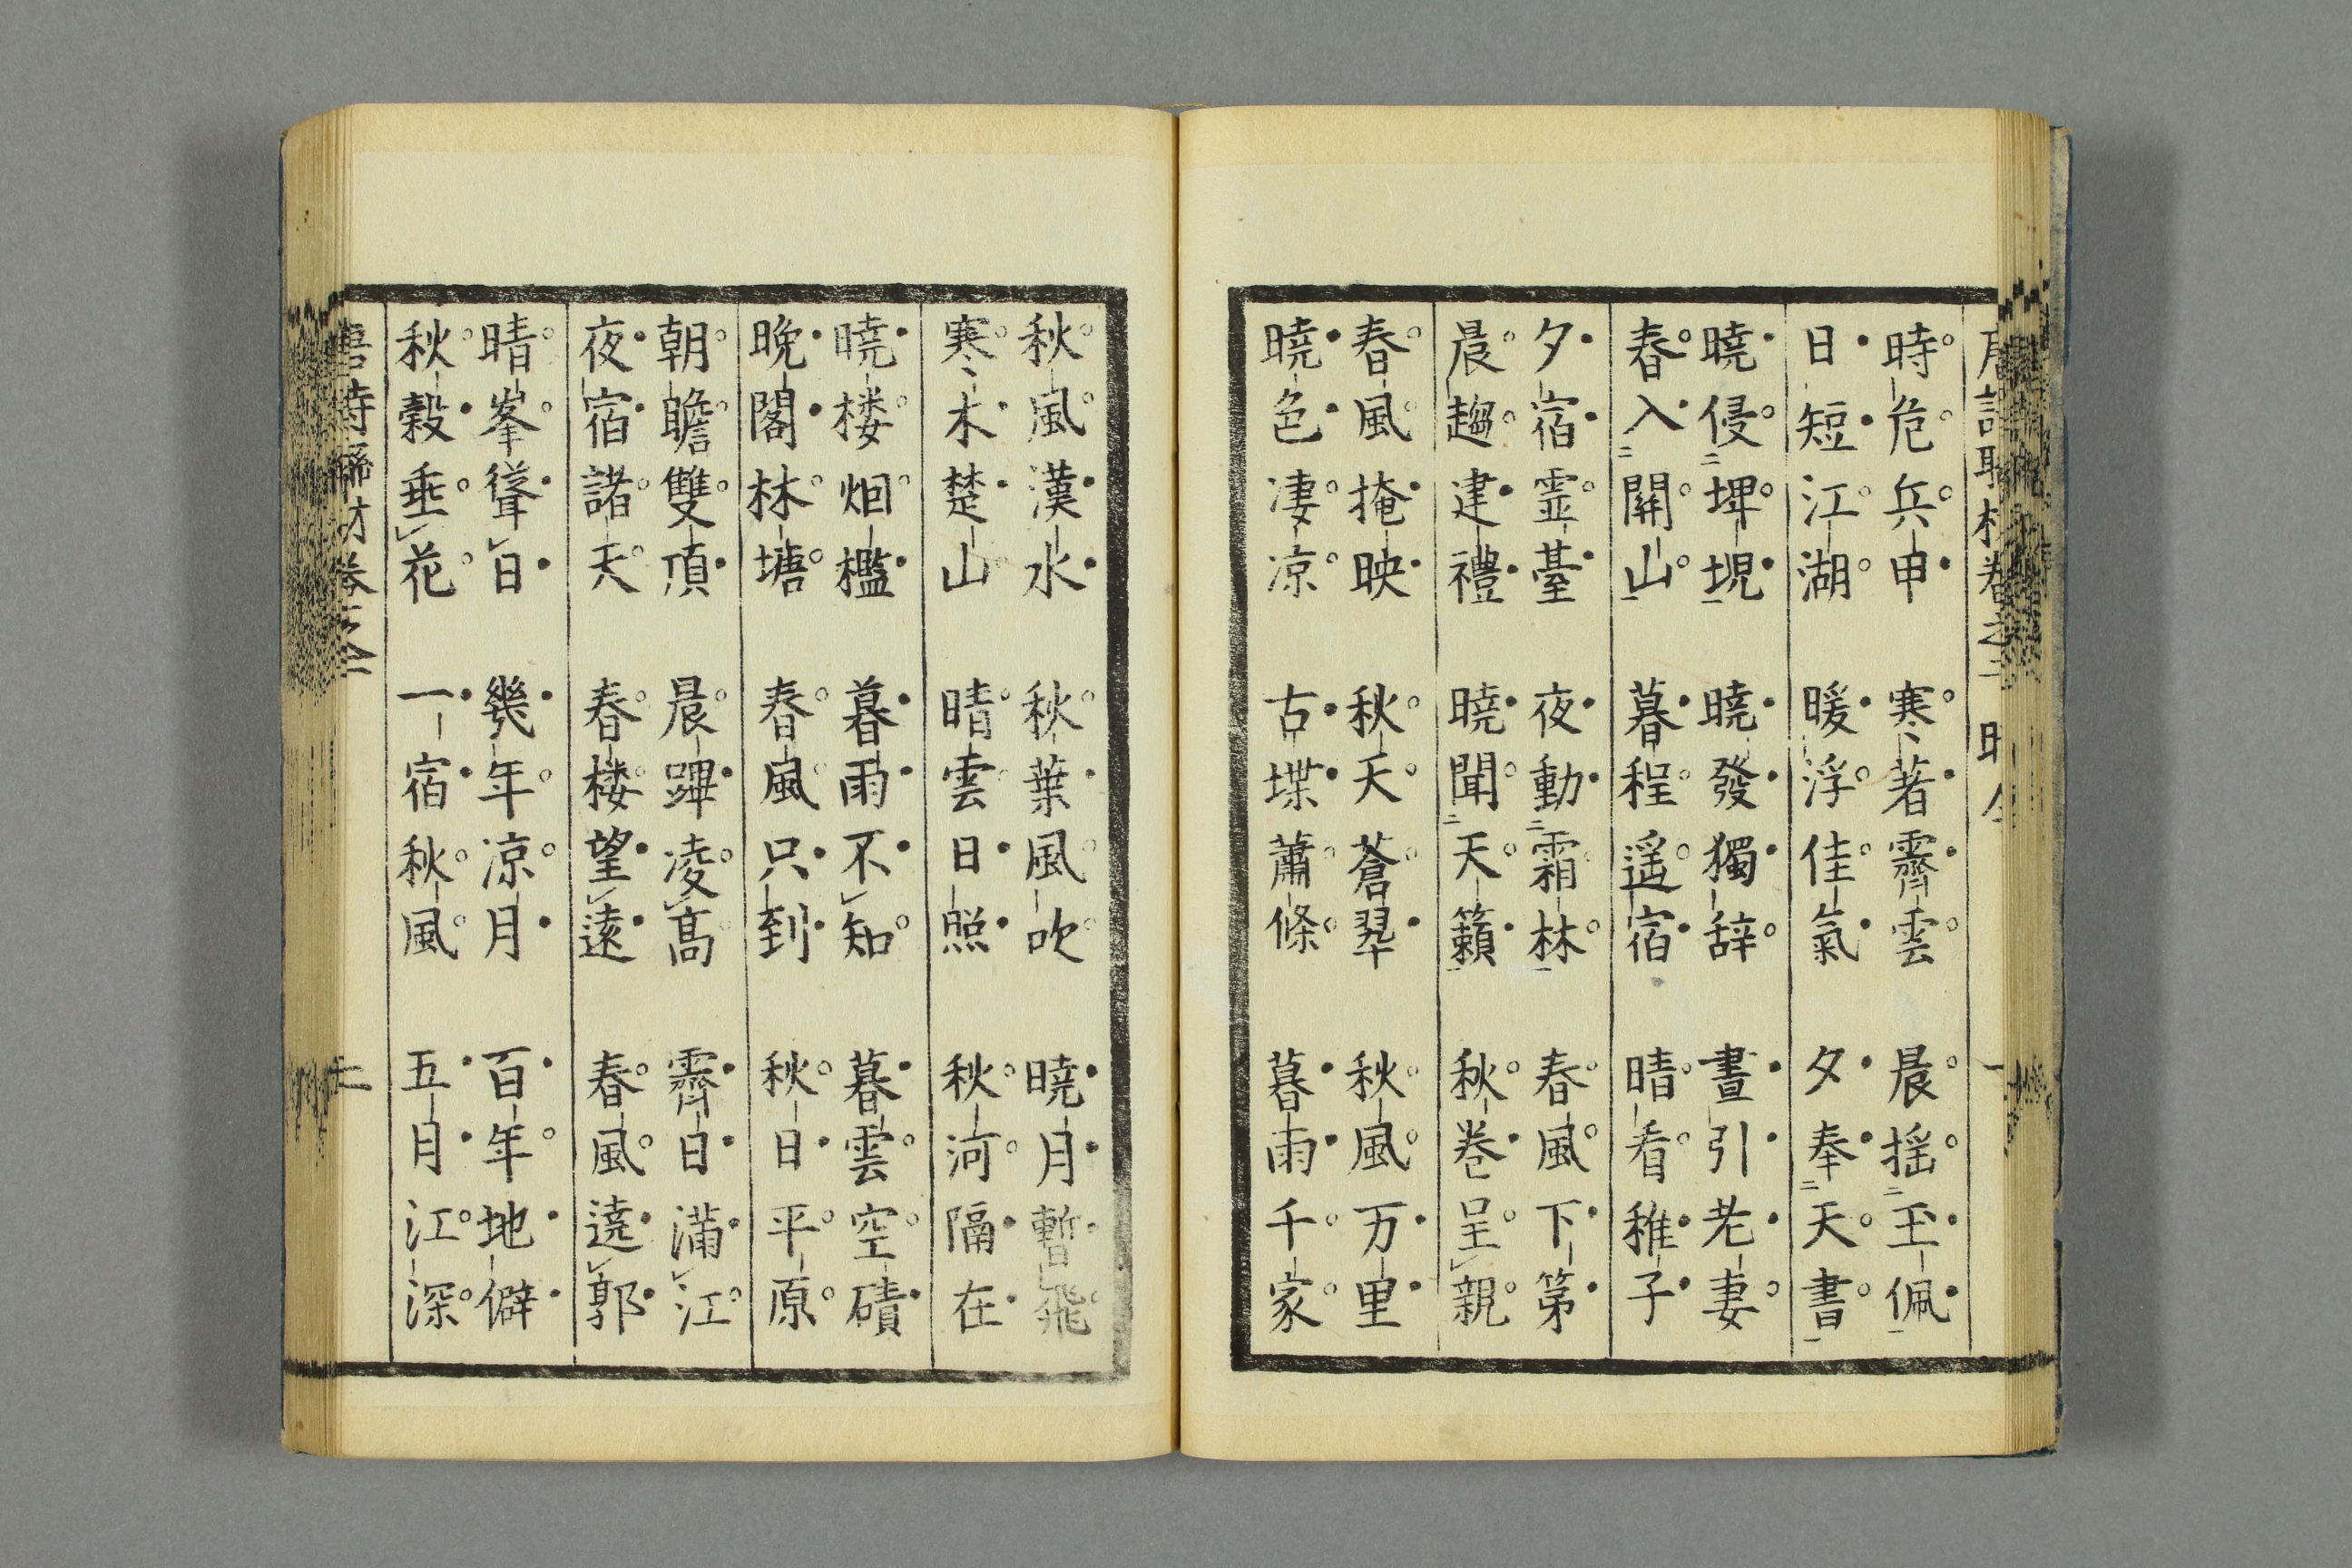 時危兵甲 寒著霽雲 晨揺玉佩
日短江湖 暖浮佳氣 夕奉天書
曉侵埤堄 曉發獨辞 晝引老妻
春入關山 暮程遥宿 晴看稚子
夕宿霊臺 夜動霜林 春風下第
晨趨建禮 曉聞天籟 秋卷呈親
春風掩映 秋天蒼翠 秋風万里
曉色凄凉 古堞蕭條 暮雨千家
秋風漢水 秋葉風吹 曉月暫飛
寒木楚山 晴雲日照 秋河隔在
曉楼烟檻 暮雨不知 暮雲空磧
晩閣林塘 春風只到 秋日平原
朝瞻雙頂 晨蹕凌高 霽日満江
夜宿諸天 春楼望遠 春風遶郭
晴峯聳日 幾年凉月 百年地僻
秋穀垂花 一宿秋風 五月江深